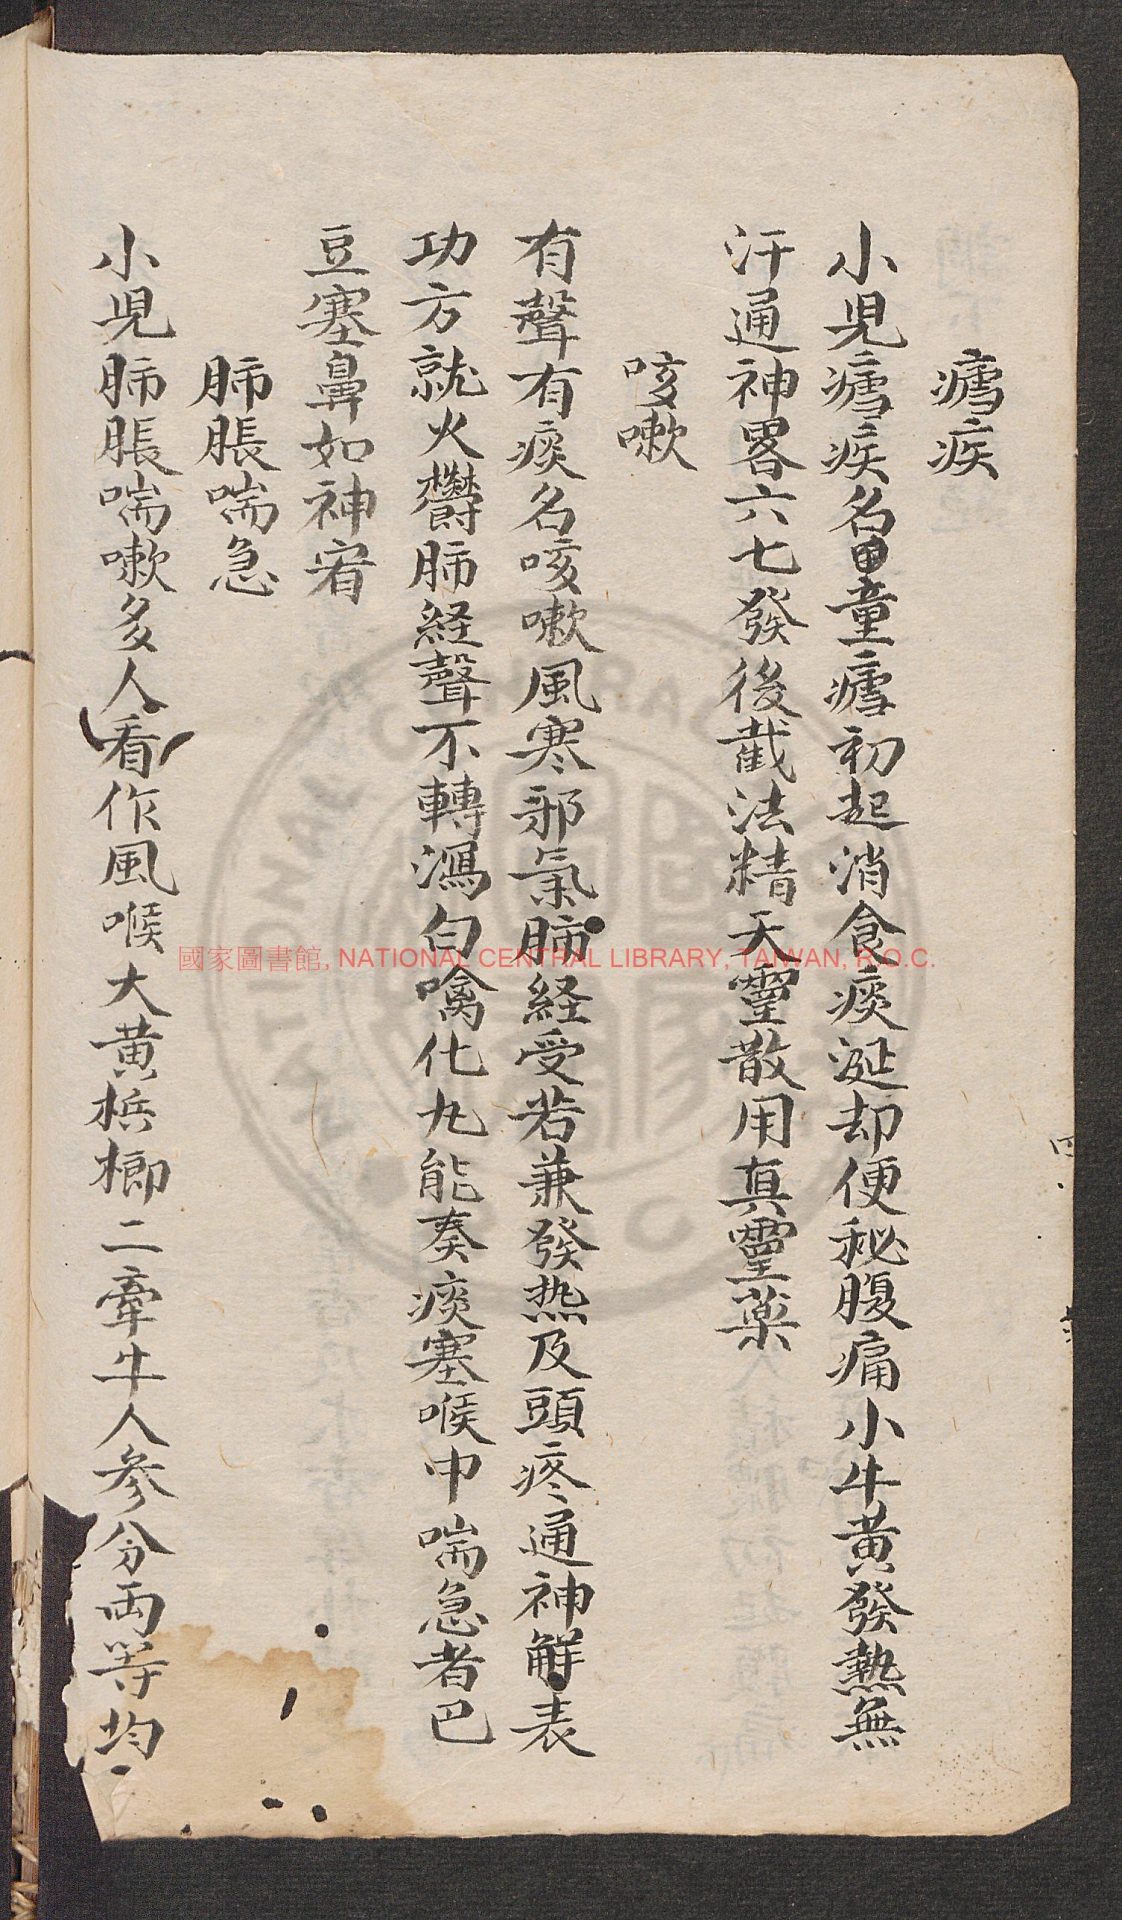 瘧疾
小児瘧疾名男童瘧初起消食痰涎却便秘腹痛小牛黄發熱無
汗通神畧六七發後截法精天靈散用真靈薬
咳嗽
有聲有痰名咳嗽風寒邪氣肺経受若兼發热及頭疼通神觧表
功方就火欝肺経聲不轉瀉白噙化丸能奏痰塞喉中喘急者巴
豆塞鼻如神宥
肺脹喘急
小児肺脹喘嗽多人看作風喉大黄梹榔二牽牛人參分両等均
國家圖書館, NATIONAL CENTRAL LIBRARY, TAIWAN, R.O.C.